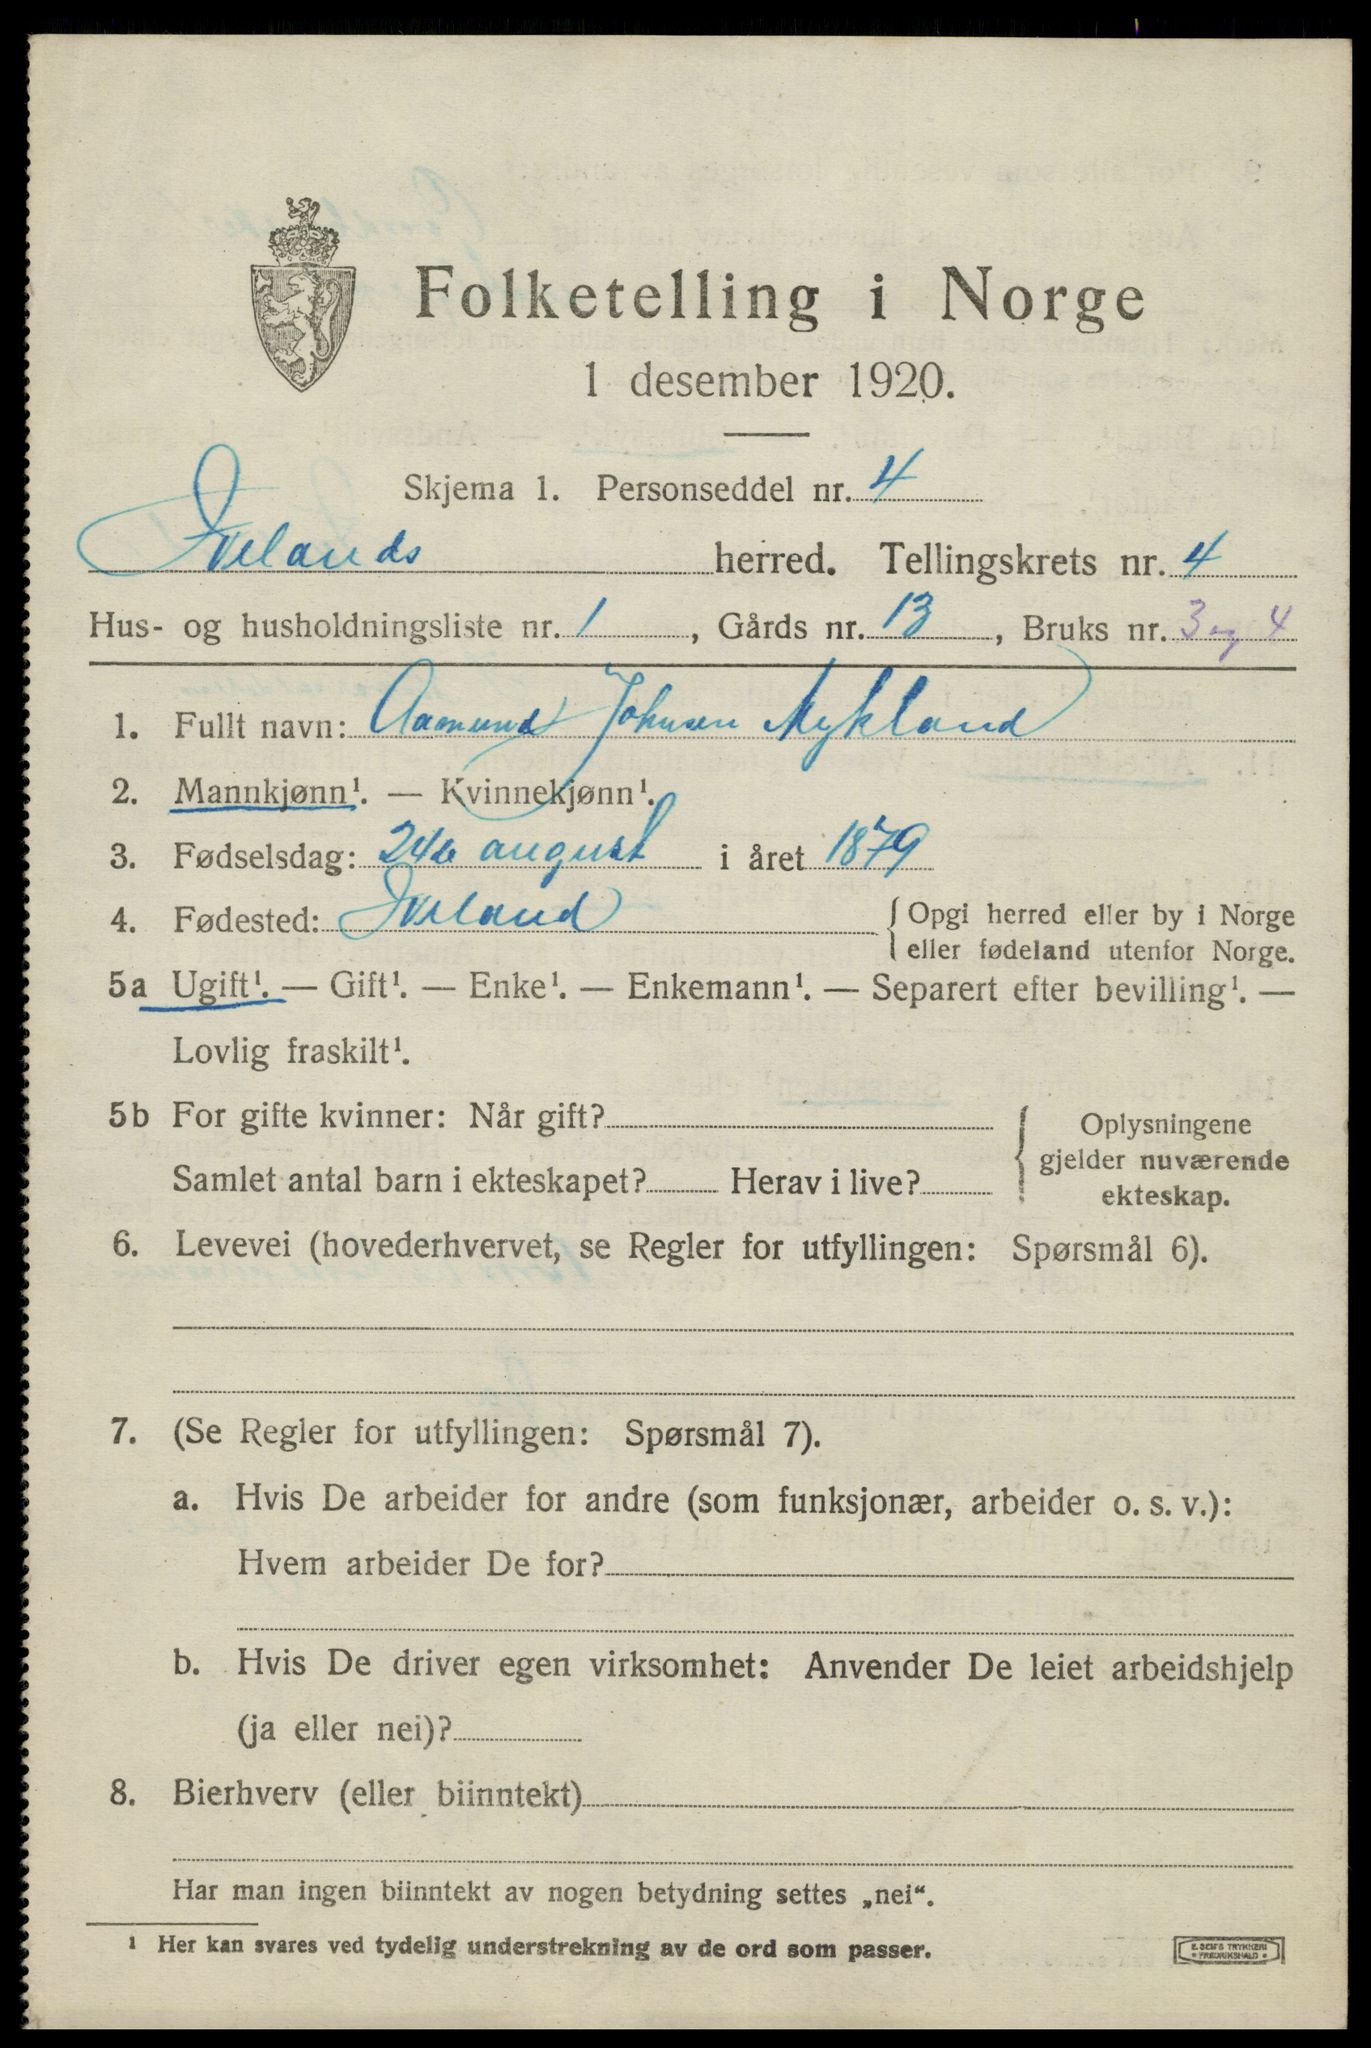 Folketelling i Norge
1 desember 1920.
Skjema 1. Personseddel nr. 4
Ivelands herred. Tellingskrets nr. 4
Hus- og husholdningsliste nr. 1, Gårds nr. 13, Bruks nr. 3 og 4
1. Fullt navn: Aamund Johnsen Mykland
2. Mannkjønn¹. — Kvinnekjønn¹.
3. Fødselsdag: 24de august i året 1879
4. Fødested: Iveland { Opgi herred eller by i Norge
eller fødeland utenfor Norge.
5a Ugift¹. — Gift¹. — Enke¹. — Enkemann¹. — Separert efter bevilling¹. —
Lovlig fraskilt¹.
5b For gifte kvinner: Når gift?
Samlet antal barn i ekteskapet? Herav i live?
{ Oplysningene
gjelder nuværende
ekteskap.
6. Levevei (hovederhvervet, se Regler for utfyllingen: Spørsmål 6).
7. (Se Regler for utfyllingen: Spørsmål 7).
a. Hvis De arbeider for andre (som funksjonær, arbeider o. s. v.):
Hvem arbeider De for?
b. Hvis De driver egen virksomhet: Anvender De leiet arbeidshjelp
(ja eller nei)?
8. Bierhverv (eller biinntekt)
Har man ingen biinntekt av nogen betydning settes „nei“.
¹ Her kan svares ved tydelig understrekning av de ord som passer.
E. SEM'S TRYKKERI
FREDRIKSHALD